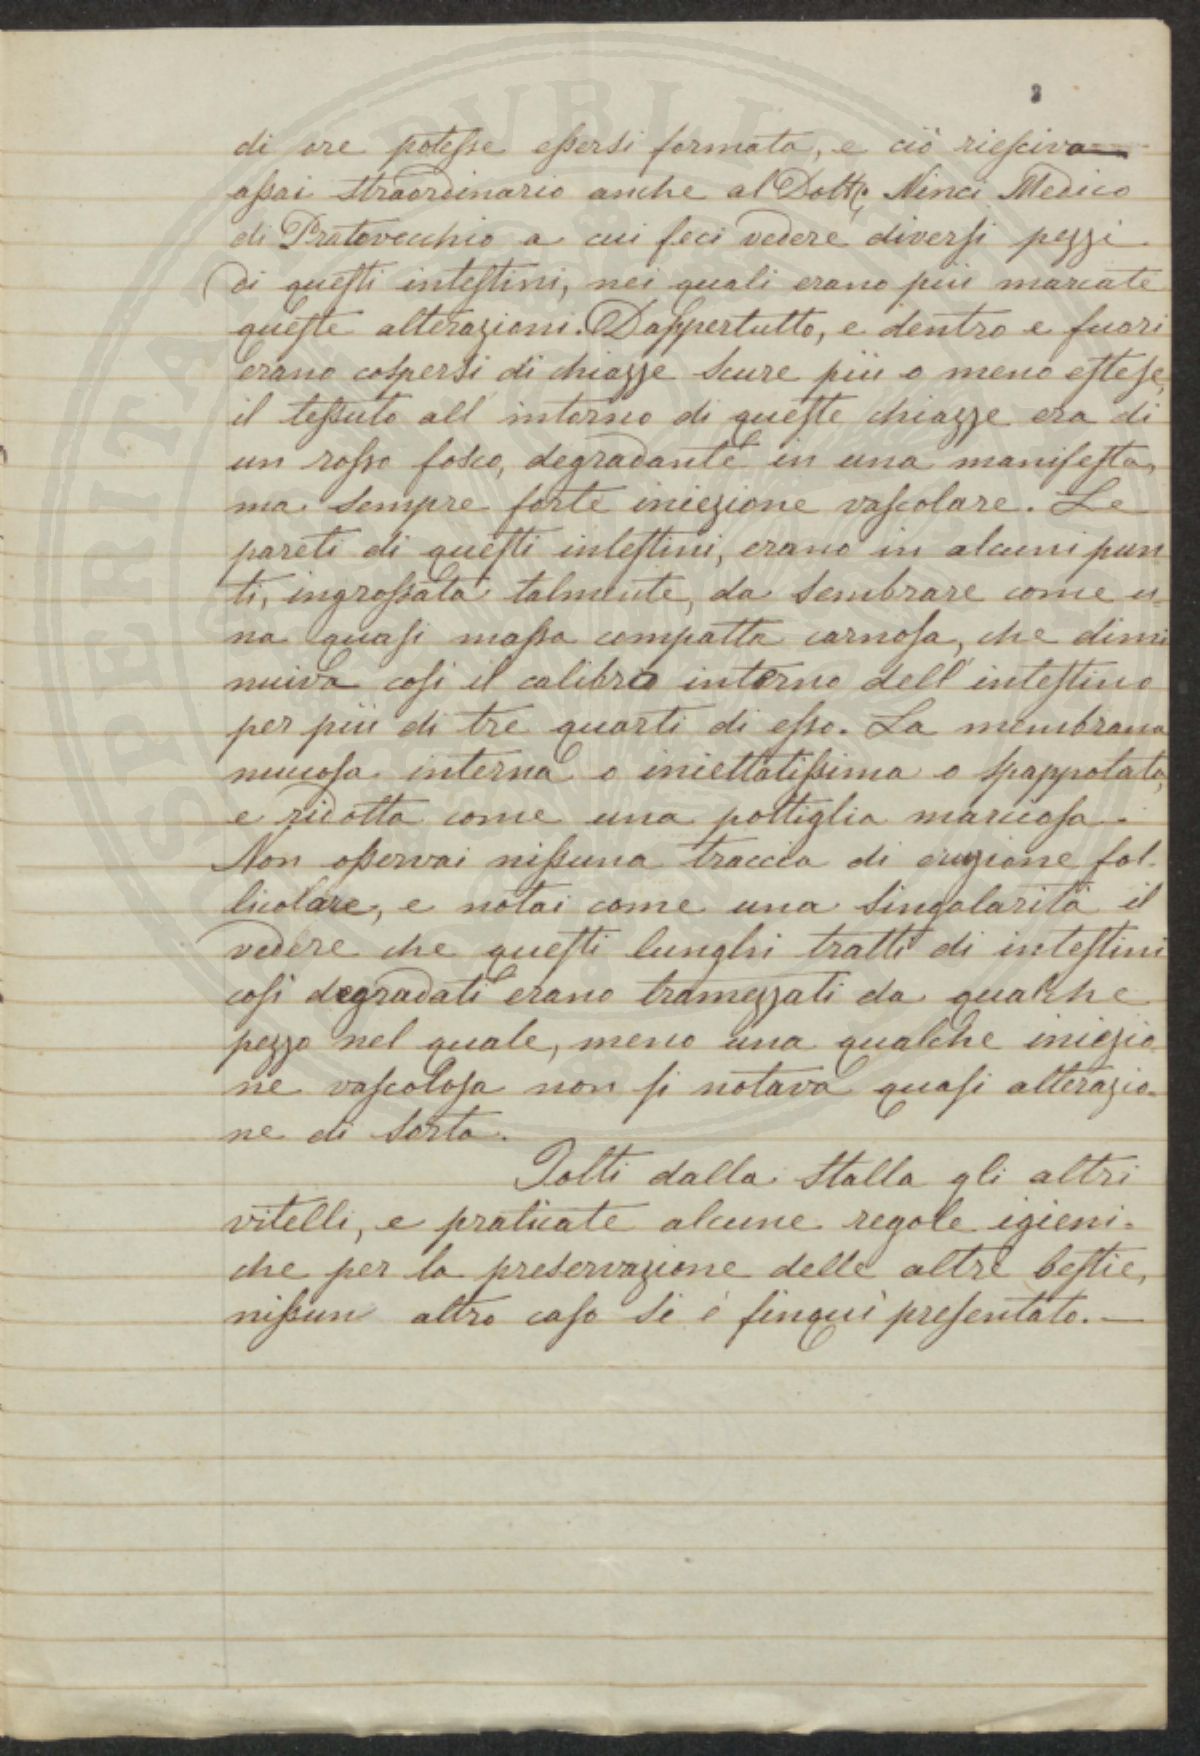 3
di ore potesse essersi formata, e ciò riesciva
assai straordinario anche al Dottr. Ninci Medico
di Pratovecchio a cui feci vedere diversi pezzi
di questi intestini, nei quali erano più marcate
queste alterazioni. Dappertutto, e dentro e fuori
erano cospersi di chiazze scure più o meno estese,
il tessuto all'intorno di queste chiazze era di
un rosso fosco, degradante in una manifesta,
ma sempre forte iniezione vascolare. Le
pareti di questi intestini, erano in alcuni pun
ti, ingrossata talmente, da sembrare come u-
na quasi massa compatta carnosa, che dimi
nuiva così il calibro interno dell'intestino
per più di tre quarti di esso. La membrana
mucosa interna o iniettatissima o spappolata,
e ridotta come una poltiglia marciosa.
Non osservai nissuna traccia di eruzione fol-
licolare, e notai come una singolarità il
vedere che questi lunghi tratti di intestini
così degradati erano tramezzati da qualche
pezzo nel quale, meno una qualche iniezio
ne vascolosa non si notava quasi alterazio-
ne di sorta.
Tolti dalla stalla gli altri
vitelli, e praticate alcune regole igieni-
che per la preservazione delle altre bestie,
nissun altro caso si è finquì presentato. —